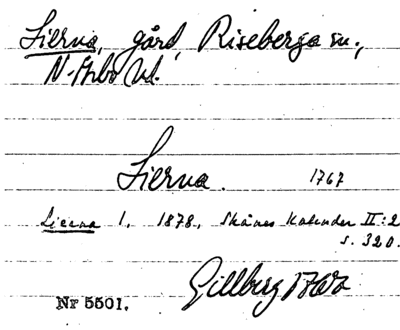 Sierna, gård, Riseberga sn.,
N. Åsbo hd.
Sierna. 1767
Sierna 1, 1878, Skånes Kalender II:2
s. 320.
Gillberg
Nr 5501.